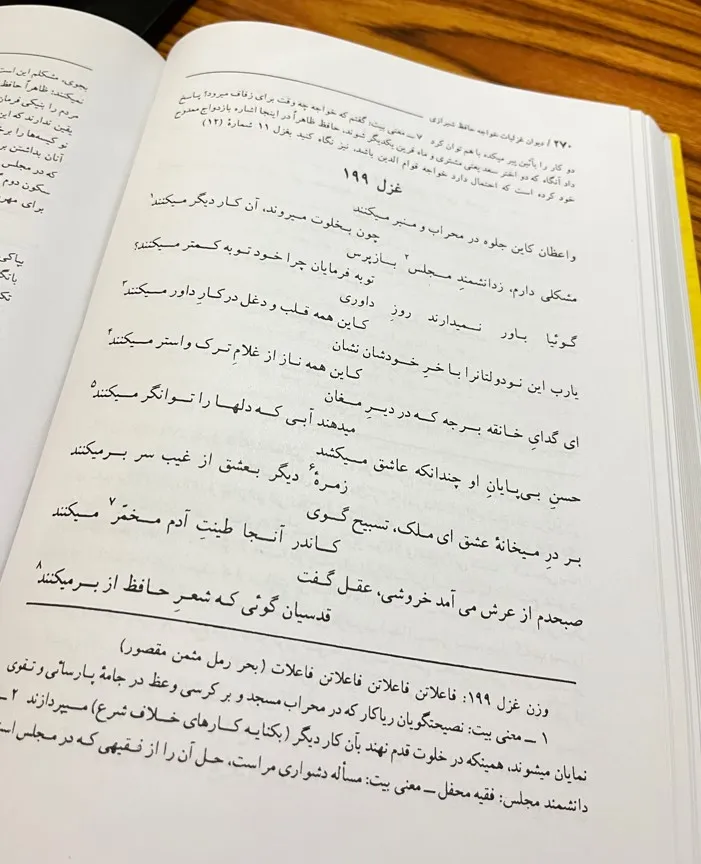 ۲۷۰ / دیوان غزلیات خواجه حافظ شیرازی
دو کار را بآئین پیر میکده با هم توان کرد ۷ــ معنی بیت: گفتم که خواجه چه وقت برای زفاف میرود؟ پاسخ
داد آنگاه که دو اختر سعد یعنی مشتری و ماه قرین یکدیگر شوند، حافظ ظاهراً در اینجا اشاره بازدواج ممدوح
خود کرده است که احتمال دارد خواجه قوام الدین باشد، نیز نگاه کنید بغزل ۱۱ شمارهٔ (۱۲)
غزل ۱۹۹
واعظان کاین جلوه در محراب و منبر میکنند
چون بخلوت میروند، آن کار دیگر میکنند۱
مشکلی دارم، زدانشمندِ مجلس۲ بازپرس
توبه فرمایان چرا خود توبه کمتر میکنند؟
گوئیا باور نمیدارند روزِ داوری
کاین همه قلب و دغل در کارِ داور میکنند۳
یارب این نودولتانرا با خرِ خودشان نشان
کاین همه ناز از غلامِ ترک و استر میکنند۴
ای گدایِ خانقه برجه که در دیرِ مغان
میدهند آبی که دلها را توانگر میکنند۵
حسنِ بی‌پایانِ او چندانکه عاشق میکشد
زمرهٔ۶ دیگر بعشق از غیب سر برمیکنند
بر درِ میخانهٔ عشق ای ملک، تسبیح گوی
کاندر آنجا طینتِ آدم مخمّر۷ میکنند
صبحدم از عرش می آمد خروشی، عقل گفت
قدسیان گوئی که شعرِ حافظ از برمیکنند۸
وزن غزل ۱۹۹: فاعلاتن فاعلاتن فاعلاتن فاعلات (بحر رمل مثمن مقصور)
۱ ــ معنی بیت: نصیحتگویان ریاکار که در محراب مسجد و بر کرسی وعظ در جامهٔ پارسائی و تقوی
نمایان میشوند، همینکه در خلوت قدم نهند بآن کار دیگر (بکنایه کارهای خلاف شرع) میپردازند ۲ ــ
دانشمند مجلس: فقیه محفل ــ معنی بیت: مسأله دشواری مراست، حل آن را از فقیهی که در مجلس